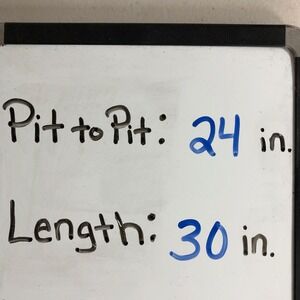 Pit to Pit: 24 in.
Length: 30 in.